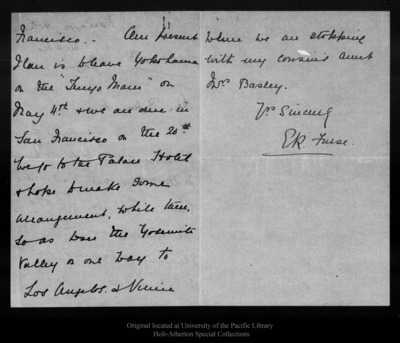 Francisco. - Our present
plan is to leave Yokohama
on the "Tenyo Maru" on
May 4th & we are due in
San Francisco on the 20th.
We go to the Palace Hotel
& hope to make some
arrangement, while there,
so as to see the Yosemite
Valley on our way to
Los Angeles. & Venice
where we are stopping
with my cousin's aunt
Mrs Basley.
Yrs Sincerely
E.R. Furse.
Original located at University of the Pacific Library
Holt-Atherton Special Collections